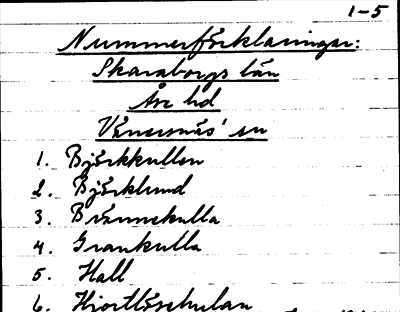 1-5
Nummerförklaringar:
Skaraborgs län
Åse hd
Vänersnäs' sn
1. Björkkullen
2. Björklund
3. Brännekulla
4. Grankulla
5. Hall
6. Hjortlöschulan